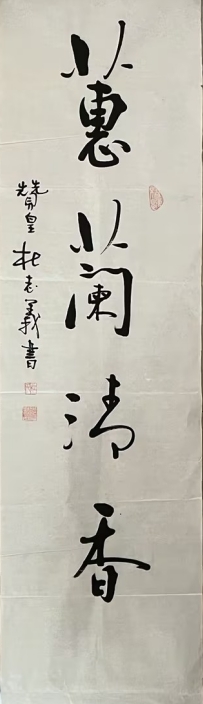 蕙蘭清香
贊皇杜志義書